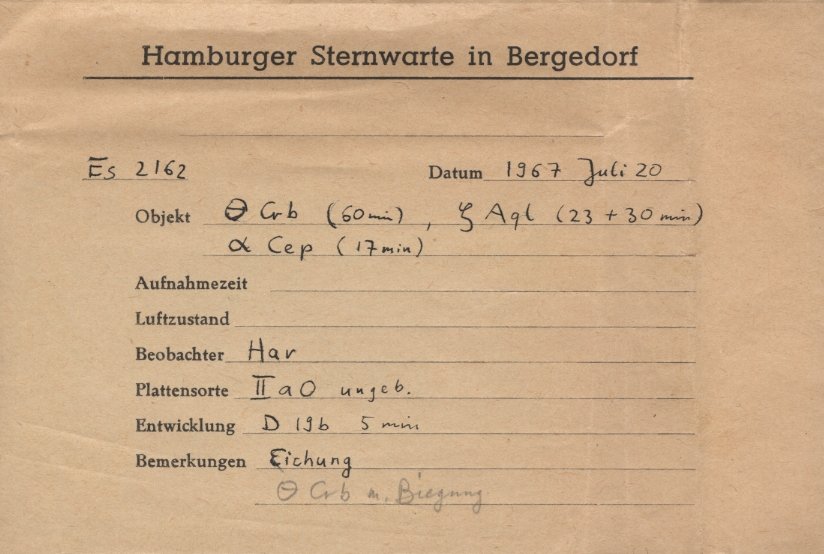 Hamburger Sternwarte in Bergedorf
Es 2162 Datum 1967 Juli 20
Objekt Θ Crb (60 min), ζ Aql (23 + 30 min)
α Cep (17 min)
Aufnahmezeit
Luftzustand
Beobachter Har
Plattensorte II a O ungeb.
Entwicklung D 19b 5 min
Bemerkungen Eichung
Θ Crb m. Biegung